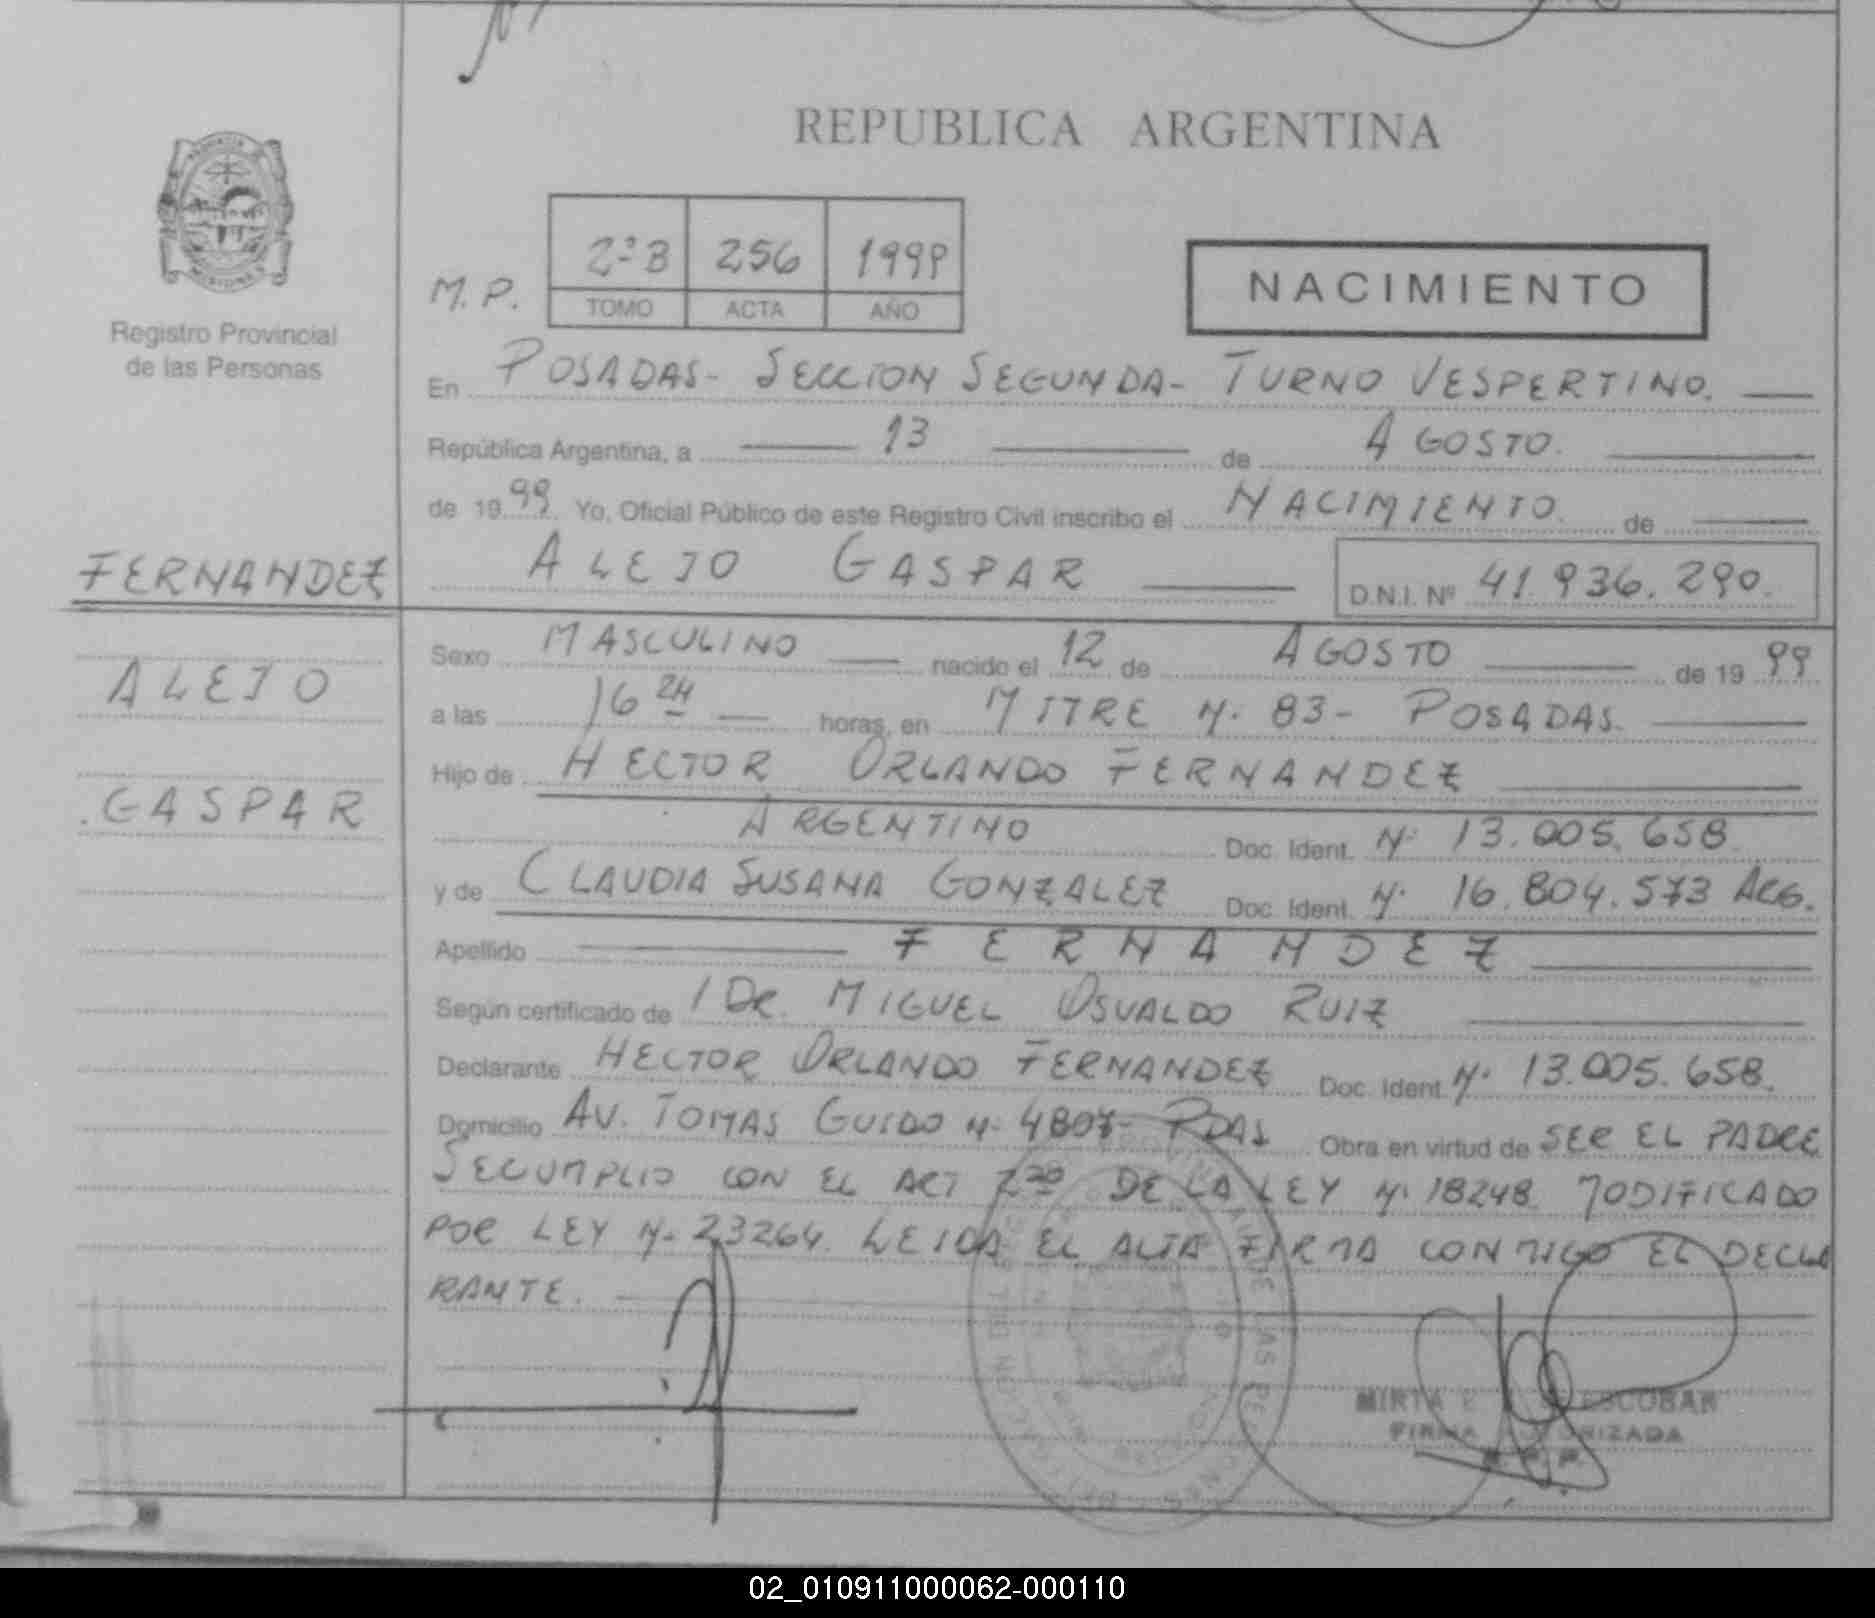 REPUBLICA ARGENTINA
Registro Provincial
de las Personas
M.P.
2ºB 256 1999
TOMO ACTA AÑO
NACIMIENTO
En POSADAS- SECCION SEGUNDA- TURNO VESPERTINO.
República Argentina, a 13 de AGOSTO.
de 1999 Yo, Oficial Público de este Registro Civil inscribo el NACIMIENTO de
FERNANDEZ
ALEJO GASPAR D.N.I. Nº 41.936.290.
Sexo MASCULINO nacido el 12 de AGOSTO de 1999
ALEJO
a las 16 24 horas, en MITRE Nº 83- POSADAS.
Hijo de HECTOR ORLANDO FERNANDEZ
GASPAR
ARGENTINO Doc. Ident. Nº 13.005.658.
y de CLAUDIA SUSANA GONZALEZ Doc. Ident. Nº 16.804.573 ARG.
Apellido FERNANDEZ
Según certificado de / DR. MIGUEL OSVALDO RUIZ
Declarante HECTOR ORLANDO FERNANDEZ Doc. Ident. Nº 13.005.658.
Domicilio AV. TOMAS GUIDO Nº 4807- PDAS Obra en virtud de SER EL PADRE
SECUMPLIO CON EL ART 2DO DE LA LEY Nº 18248 MODIFICADO
POR LEY Nº 23264. LEIDA EL ACTA FIRMA CONMIGO EL DECLA
RANTE.
MIRTA E ESCOBAR
FIRMA AUTORIZADA
02_010911000062-000110